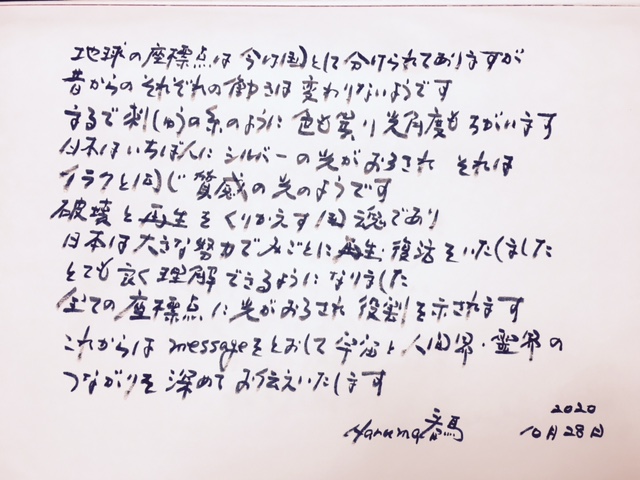 地球の座標点は 今は国として分けられておりますが
昔からの それぞれの働きは 変わりないようです
まるで刺しゅうの糸のように 色も異り 光角度もちがいます
日本はいちばんに シルバーの光がおろされ それは
イラクと同じ 質感の光のようです
破壊と再生をくりかえす国魂であり
日本は大きな努力でみごとに再生・復活をいたしました
とても良く理解できるようになりました
全ての座標点に光がおろされ 役割を示されます
これからは messageをとおして宇宙と人間界・霊界の
つながりを深めてお伝えいたします
Haruma春馬
2020
10月28日